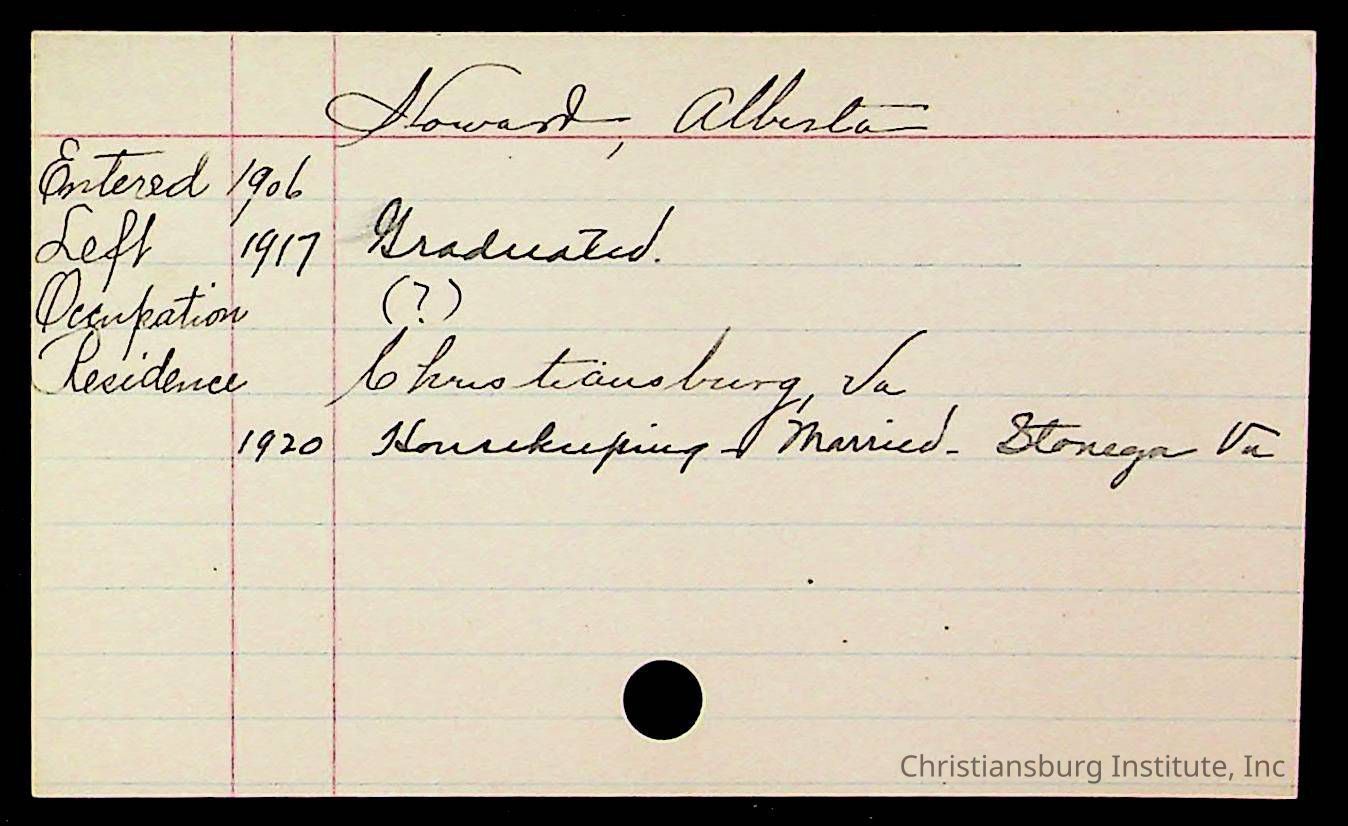 Howard, Alberta
Entered 1906
Left 1917 Graduated.
Occupation (?)
Residence Christiansburg, Va
1920 Housekeeping - Married - Stonega Va
Christiansburg Institute, Inc